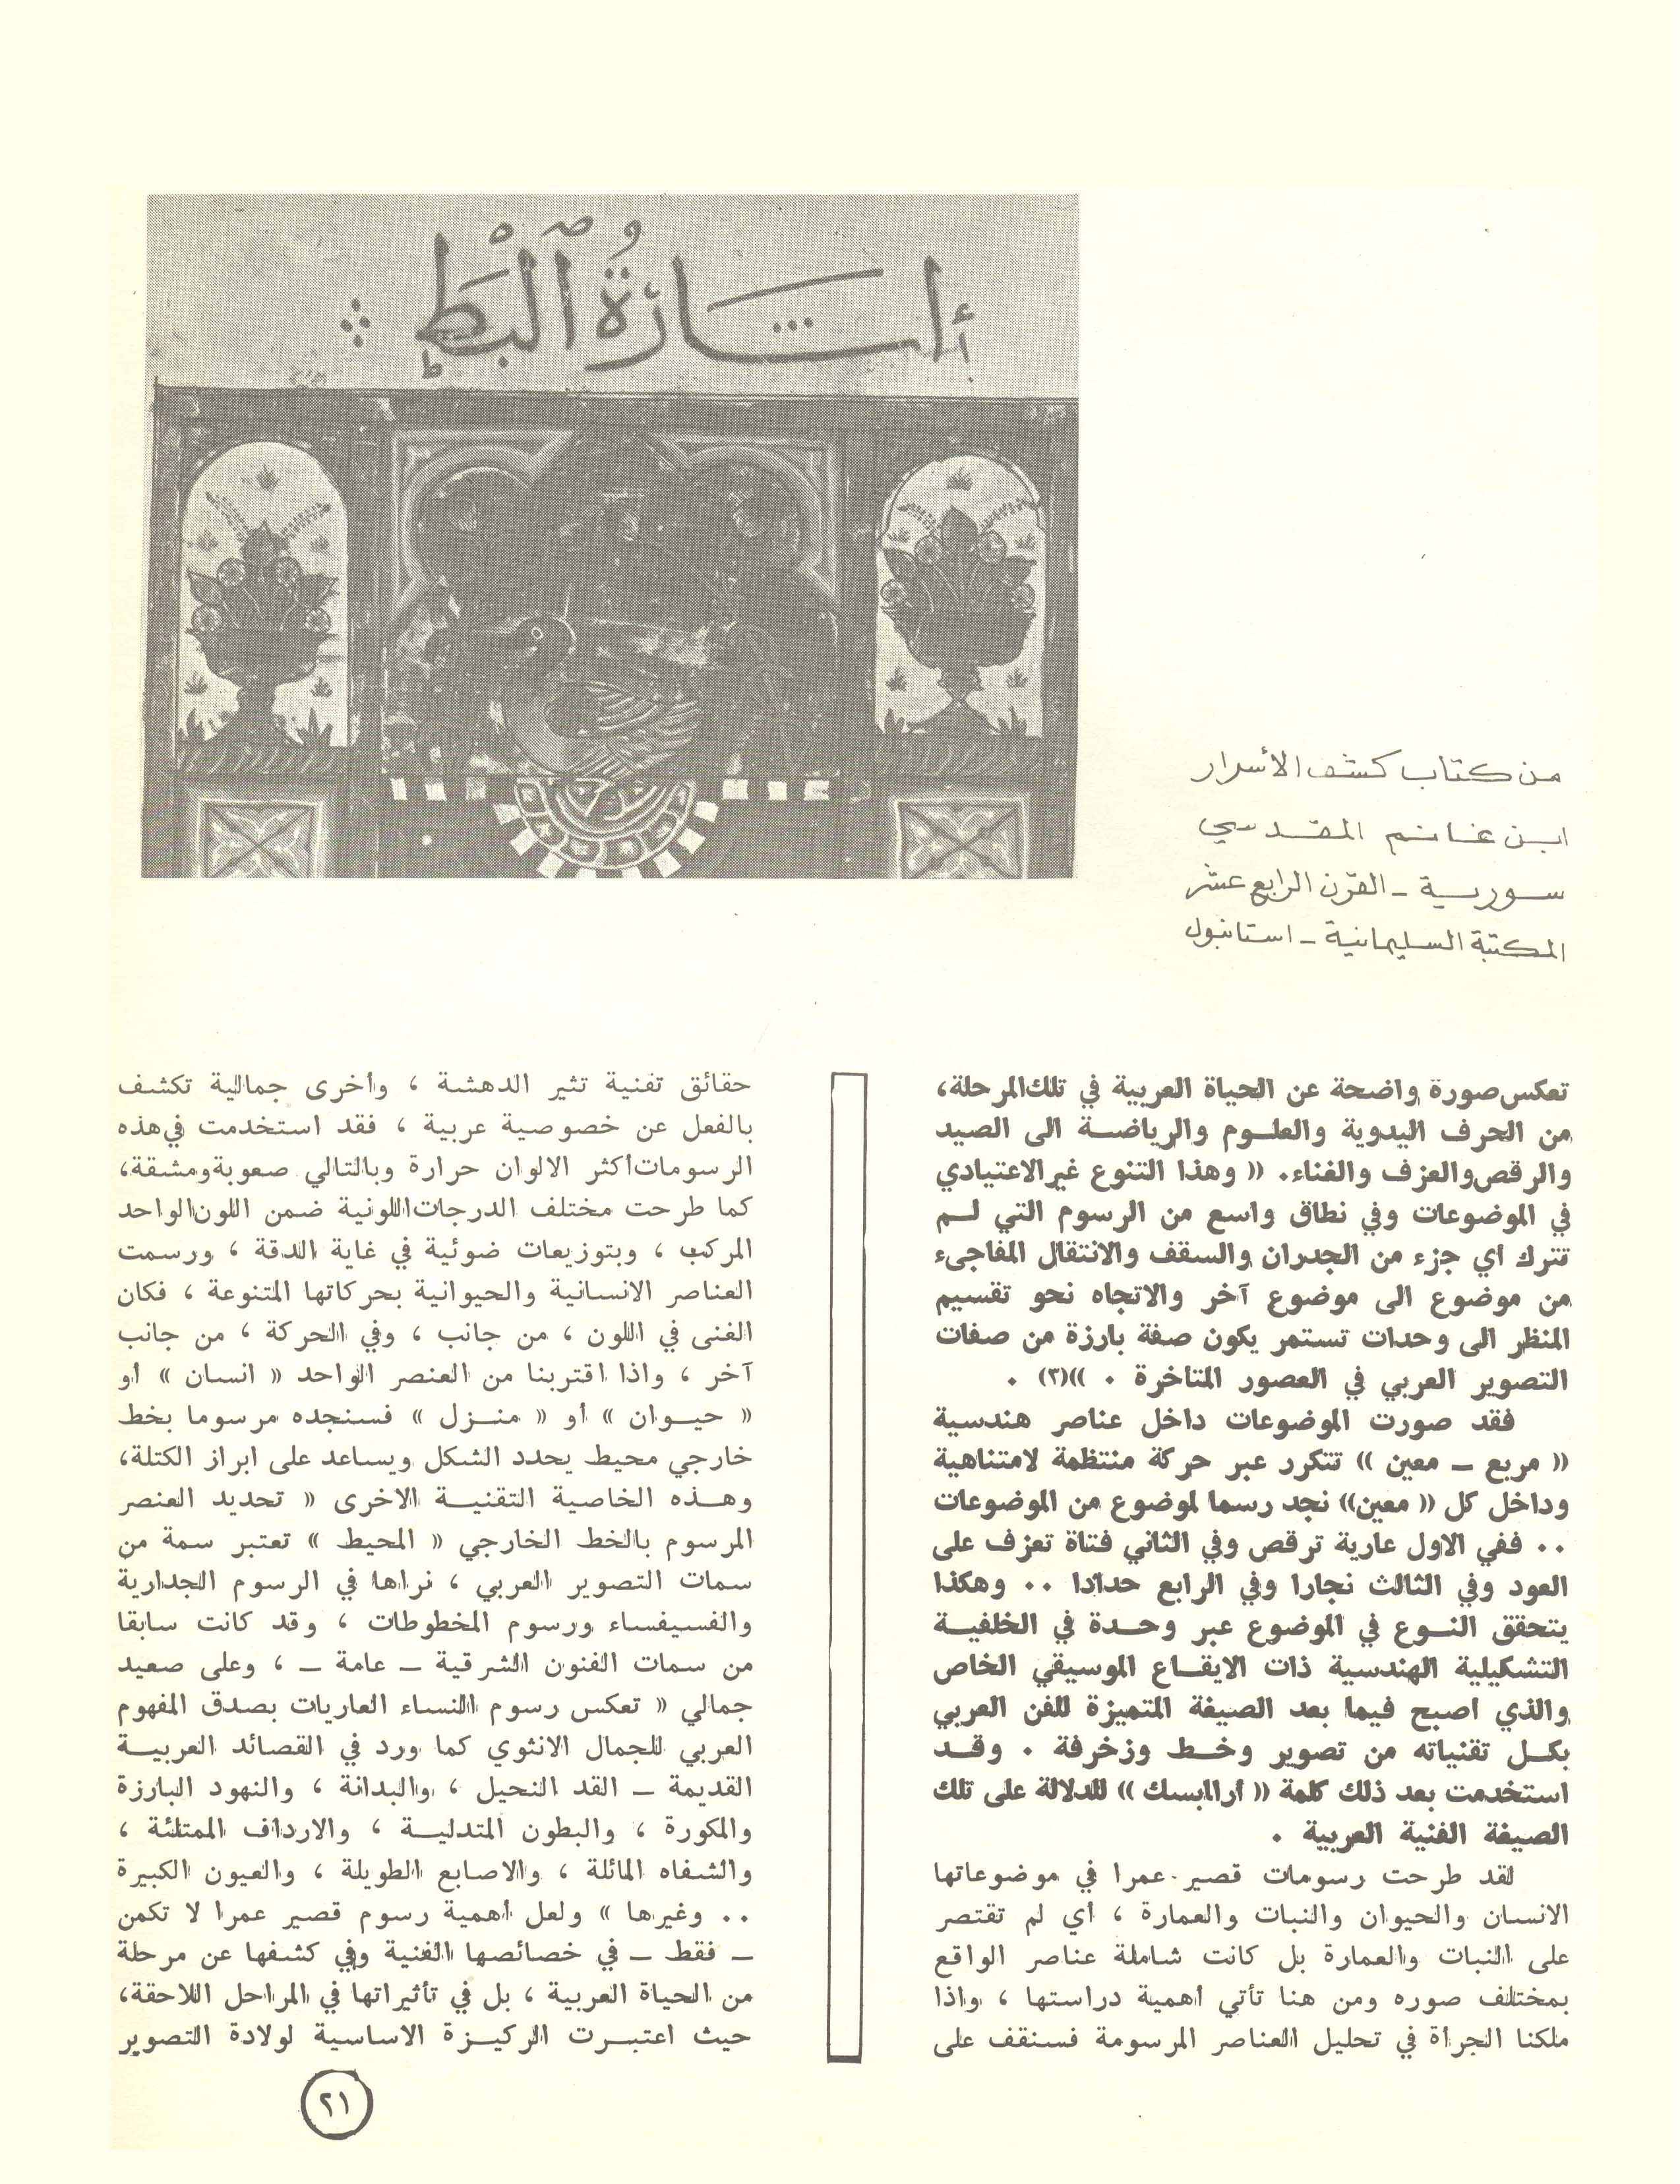 إشارة البط
من كتاب كشف الأسرار
ابن غانم المقدسي
سورية - القرن الرابع عشر
المكتبة السليمانية - استانبول
تعكس صورة واضحة عن الحياة العربية في تلك المرحلة،
من الحرف اليدوية والعلوم والرياضة الى الصيد
والرقص والعزف والغناء. « وهذا التنوع غير الاعتيادي
في الموضوعات وفي نطاق واسع من الرسوم التي لم
تترك أي جزء من الجدران والسقف والانتقال المفاجىء
من موضوع الى موضوع آخر والاتجاه نحو تقسيم
المنظر الى وحدات تستمر يكون صفة بارزة من صفات
التصوير العربي في العصور المتأخرة . »(٣) .
فقد صورت الموضوعات داخل عناصر هندسية
« مربع - معين » تتكرر عبر حركة منتظمة لامتناهية
وداخل كل « معين» نجد رسما لموضوع من الموضوعات
.. ففي الاول عارية ترقص وفي الثاني فتاة تعزف على
العود وفي الثالث نجارا وفي الرابع حدادا .. وهكذا
يتحقق النوع في الموضوع عبر وحدة في الخلفية
التشكيلية الهندسية ذات الايقاع الموسيقي الخاص
والذي اصبح فيما بعد الصيغة المتميزة للفن العربي
بكل تقنياته من تصوير وخط وزخرفة . وقد
استخدمت بعد ذلك كلمة « أرابسك » للدلالة على تلك
الصيغة الفنية العربية .
لقد طرحت رسومات قصير عمرا في موضوعاتها
الانسان والحيوان والنبات والعمارة ، أي لم تقتصر
على النبات والعمارة بل كانت شاملة عناصر الواقع
بمختلف صوره ومن هنا تأتي أهمية دراستها ، واذا
ملكنا الجرأة في تحليل العناصر المرسومة فسنقف على
حقائق تفنية تثير الدهشة ، وأخرى جمالية تكشف
بالفعل عن خصوصية عربية ، فقد استخدمت في هذه
الرسومات أكثر الالوان حرارة وبالتالي صعوبة ومشقة،
كما طرحت مختلف الدرجات اللونية ضمن اللون الواحد
المركب ، وبتوزيعات ضوئية في غاية الدقة ، ورسمت
العناصر الانسانية والحيوانية بحركاتها المتنوعة ، فكان
الغنى في اللون ، من جانب ، وفي الحركة ، من جانب
آخر ، واذا اقتربنا من العنصر الواحد « انسان » أو
« حيوان » أو « منزل » فسنجده مرسوما بخط
خارجي محيط يحدد الشكل ويساعد على ابراز الكتلة،
وهذه الخاصية التقنية الاخرى « تحديد العنصر
المرسوم بالخط الخارجي « المحيط » تعتبر سمة من
سمات التصوير العربي ، نراها في الرسوم الجدارية
والفسيفساء ورسوم المخطوطات ، وقد كانت سابقا
من سمات الفنون الشرقية - عامة - ، وعلى صعيد
جمالي « تعكس رسوم النساء العاريات بصدق المفهوم
العربي للجمال الانثوي كما ورد في القصائد العربية
القديمة - القد النحيل ، والبدانة ، والنهود البارزة
والمكورة ، والبطون المتدلية ، والارداف الممتلئة ،
والشفاه المائلة ، والاصابع الطويلة ، والعيون الكبيرة
.. وغيرها » ولعل أهمية رسوم قصير عمرا لا تكمن
- فقط - في خصائصها الفنية وفي كشفها عن مرحلة
من الحياة العربية ، بل في تأثيراتها في المراحل اللاحقة،
حيث اعتبرت الركيزة الاساسية لولادة التصوير
٢١